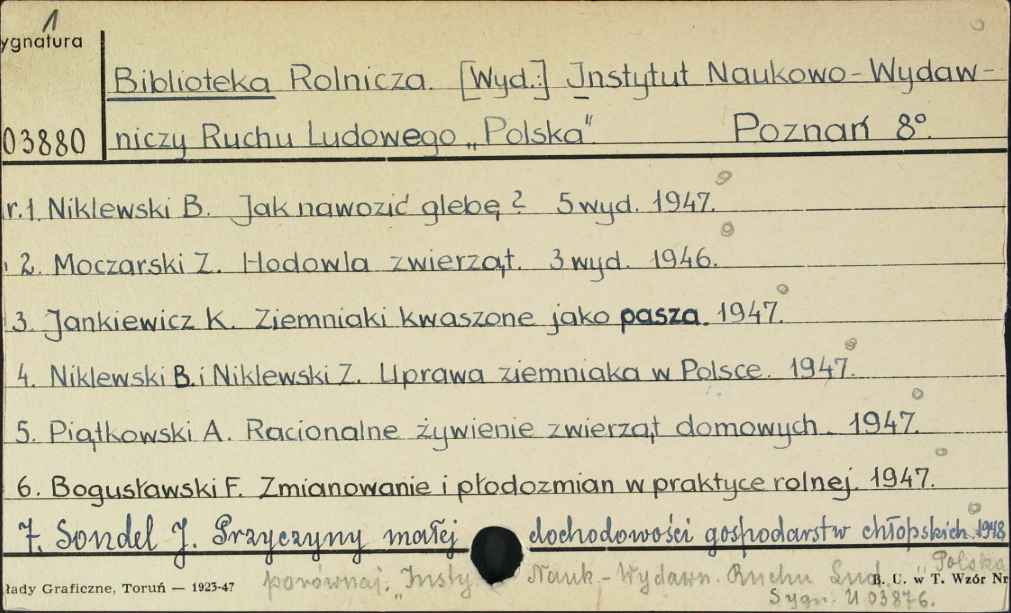 1
ygnatura
Biblioteka Rolnicza. [Wyd.:] Instytut Naukowo-Wydaw-
03880 niczy Ruchu Ludowego „Polska". Poznań 8°.
r.1. Niklewski B. Jak nawozić glebę? 5 wyd. 1947.
2. Moczarski Z. Hodowla zwierząt. 3 wyd. 1946.
3. Jankiewicz K. Ziemniaki kwaszone jako pasza. 1947.
4. Niklewski B. i Niklewski Z. Uprawa ziemniaka w Polsce. 1947.
5. Piątkowski A. Racionalne żywienie zwierząt domowych. 1947.
6. Bogusławski F. Zmianowanie i płodozmian w praktyce rolnej. 1947.
7. Sondel J. Przyczyny małej dochodowości gospodarstw chłopskich. 1948
łady Graficzne, Toruń — 1923-47 porównaj. „Insty Nauk.-Wydawn. Ruchu Lud „Polska
B. U. w T. Wzór Nr
Sygn. U 03876.